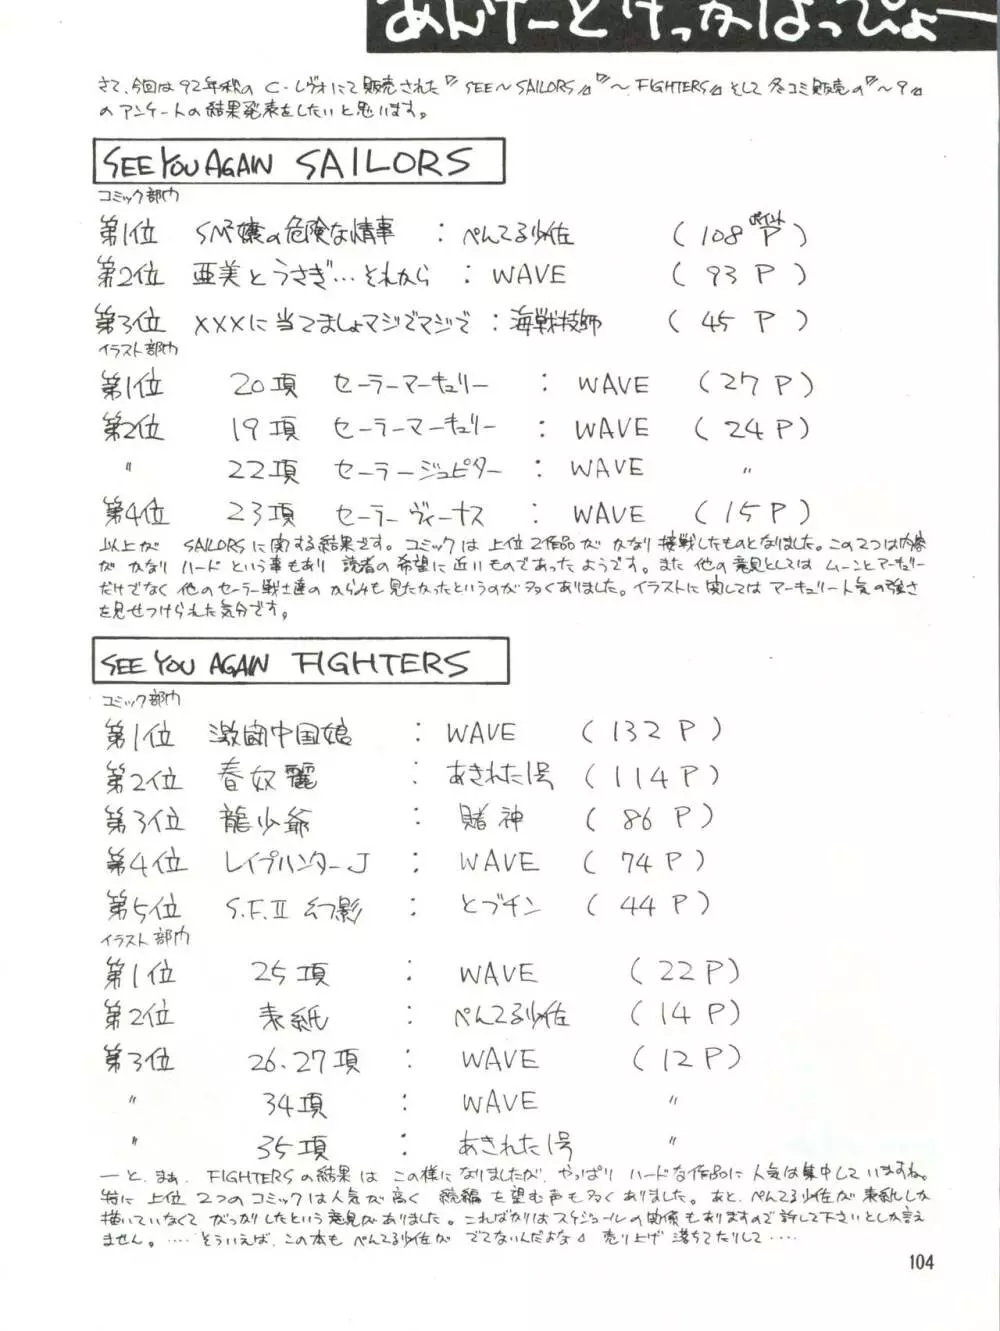 あんけーとけっかはっぴょー
さて、今回は92年秋の C・レヴォにて販売された『SEE～SAILORS』『～FIGHTERS』そして冬コミ販売の『～9』
のアンケートの結果発表をしたいと思います。
SEE YOU AGAIN SAILORS
コミック部門
第1位 SM嬢の危険な情事 : ぺんてる少佐 (108ポイントP)
第2位 亜美とうさぎ…それから : WAVE (93P)
第3位 ×××に当てましょマジでマジで : 海戦技師 (45P)
イラスト部門
第1位 20項 セーラーマーキュリー : WAVE (27P)
第2位 19項 セーラーマーキュリー : WAVE (24P)
〃 22項 セーラージュピター : WAVE 〃
第4位 23項 セーラーヴィーナス : WAVE (15P)
以上が SAILORSに関する結果です。コミックは上位2作品が かなり接戦したものとなりました。この2つは内容
が かなり ハード という事もあり 読者の希望に近いものであったようです。また 他の意見としては ムーンとマーキュリー
だけでなく 他のセーラー戦士達の からみも見たかったというのが多くありました。イラストに関しては マーキュリー人気の強さ
を見せつけられた気分です。
SEE YOU AGAIN FIGHTERS
コミック部門
第1位 激闘中国娘 : WAVE (132P)
第2位 春奴麗 : あきれた1号 (114P)
第3位 龍少爺 : 賭神 (86P)
第4位 レイプハンターJ : WAVE (74P)
第5位 S.F.II 幻影 : とブチン (44P)
イラスト部門
第1位 25項 : WAVE (22P)
第2位 表紙 : ぺんてる少佐 (14P)
第3位 26.27項 : WAVE (12P)
〃 34項 : WAVE 〃
〃 35項 : あきれた1号 〃
ーと、まぁ、FIGHTERSの結果は この様になりましたが、やっぱり ハードな作品に人気は集中していますね。
特に 上位 2つのコミックは人気が高く 続編を望む声も多くありました。あと、ぺんてる少佐が表紙しか
描いていなくて がっかりしたという意見がありました。こればかりはスケジュールの関係もありますので許して下さいとしか言え
ません。……そういえば、この本も ぺんてる少佐が でてないんだよな 売り上げ落ちてたりして‥‥
104